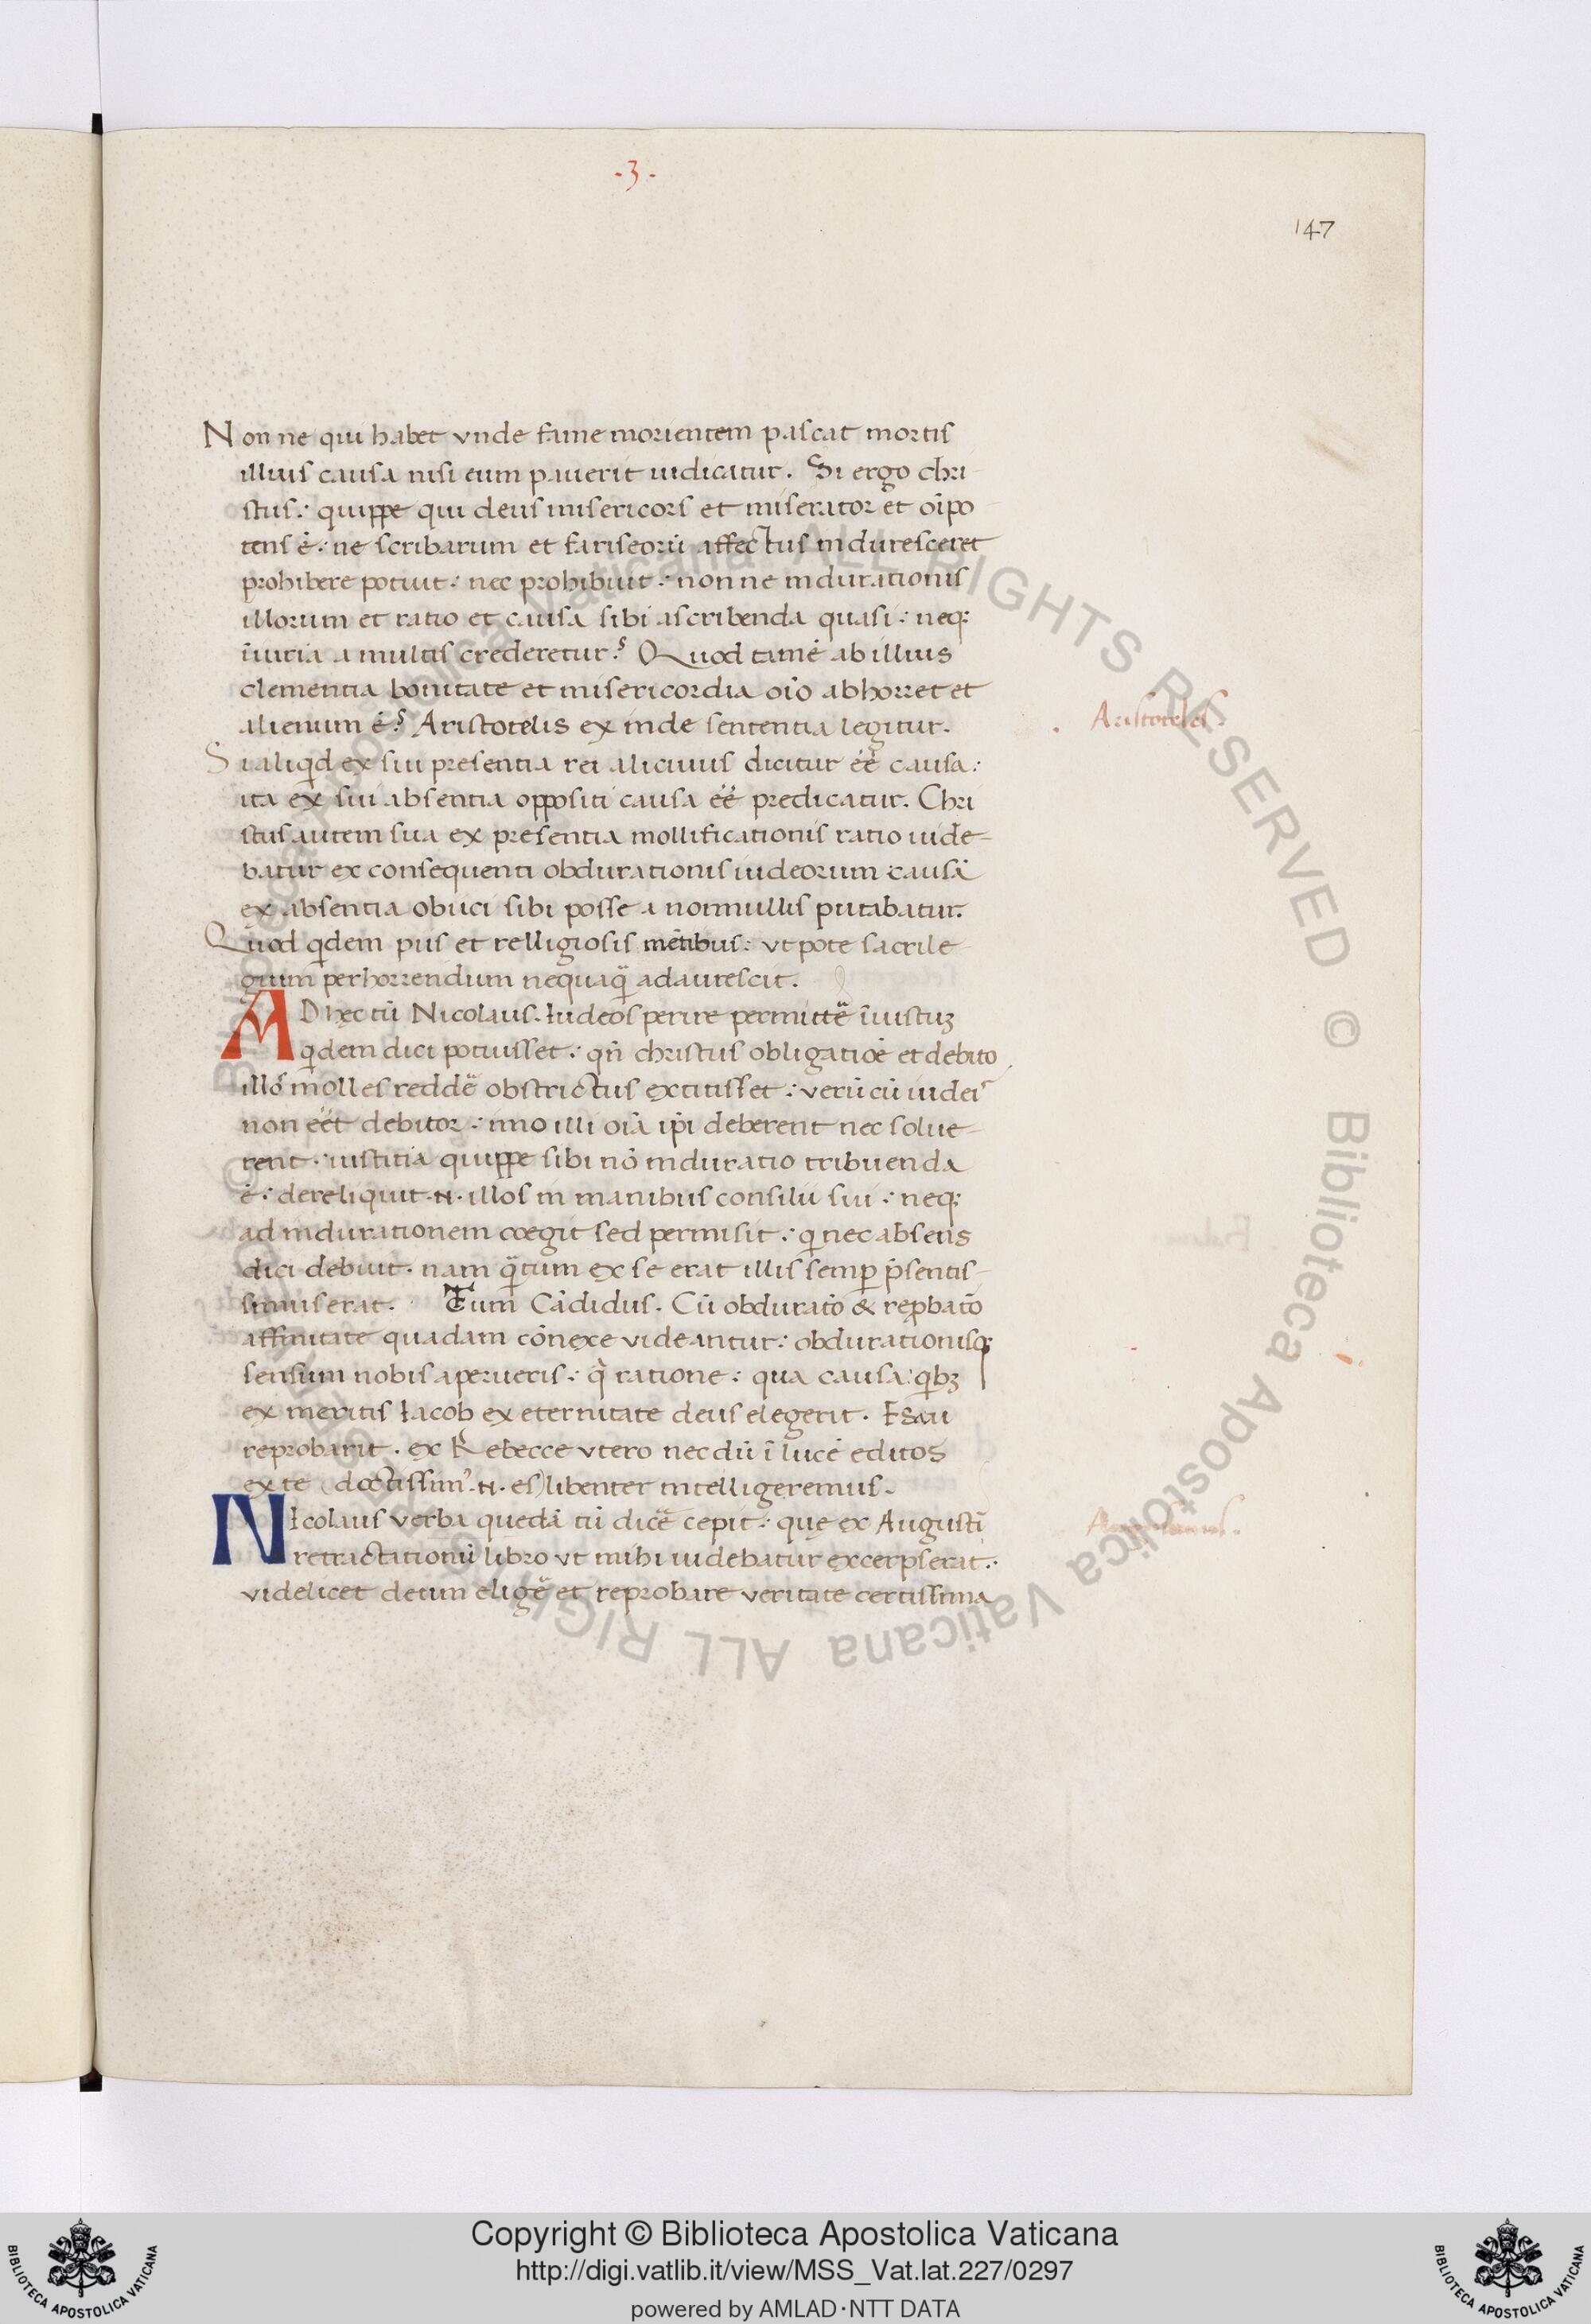 ·3·
147
Non ne qui habet vnde fame morientem pascat mortis
illius causa nisi eum pauerit iudicatur. Si ergo chri
stus: quippe qui deus misericors et miserator et oīpo
tens ē: ne scribarum et fariseorū affectus induresceret
prohibere potuit: nec prohibuit: non ne indurationis
illorum et ratio et causa sibi ascribenda quasi: neq;
īiuria a multis crederetur? Quod tamē ab illius
clementia bonitate et misericordia oīo abhorret et
alienum ē? Aristotelis ex inde sententia legitur.
Aristoteles.
Si aliqd ex sui presentia rei alicuius dicitur ēē causa:
ita ex sui absentia oppositi causa ēē predicatur. Chri
stus autem sua ex presentia mollificationis ratio uide-
batur ex consequenti obdurationis iudeorum causā
ex absentia obiici sibi posse a nonnullis putabatur.
Quod qdem piis et relligiosis mētibus: vt pote sacrile
gium perhorrendum nequaq̄ adaurescit.
AD hęc tū Nicolaus. Iudeos perire permittē īiustuꝫ
qdem dici potuisset: qn̄ christus obligatiōē et debito
illoꝝ molles reddē obstrictus extitisset: verū cū iudeis
non eēt debitor: imo illi oīa ip̄i deberent nec solue-
rent: iustitia quippe sibi nō induratio tribuenda
ē: dereliquit .n. illos in manibus consilii sui: neq;
ad indurationem coegit sed permisit: q nec absens
dici debuit. nam q̄tum ex se erat illis semꝑ p̄sentis-
simus erat. Tum Cādidus. Cū obduratō & reꝓbatō
affinitate quadam cōnexe videantur: obdurationisq;
sensum nobis aperueris: q̄ ratione: qua causa: qbꝫ
ex meritis Iacob ex eternitate deus elegerit. Esau
reprobarit. ex Rebecce vtero nec dū ī lucē editos
ex te (doctissim' .n. es) libenter intelligeremus.
NIcolaus verba quedā tū dicē cepit: quę ex Augustī
Augustinus.
retractationū libro vt mihi uidebatur excerpserat:
videlicet deum eligē et reprobare veritate certissima
Copyright © Biblioteca Apostolica Vaticana
http://digi.vatlib.it/view/MSS_Vat.lat.227/0297
powered by AMLAD·NTT DATA
BIBLIOTECA APOSTOLICA VATICANA
BIBLIOTECA APOSTOLICA VATICANA
© Biblioteca Apostolica Vaticana ALL RIGHTS RESERVED © Biblioteca Apostolica Vaticana ALL RIGH